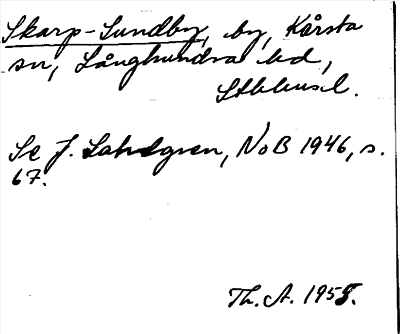 Skarp-Sundby, by, Kårsta
sn, Långhundra hd,
Sthlmsl.
Se J. Sahlgren, NoB 1946, s.
67.
Th. A. 1958.